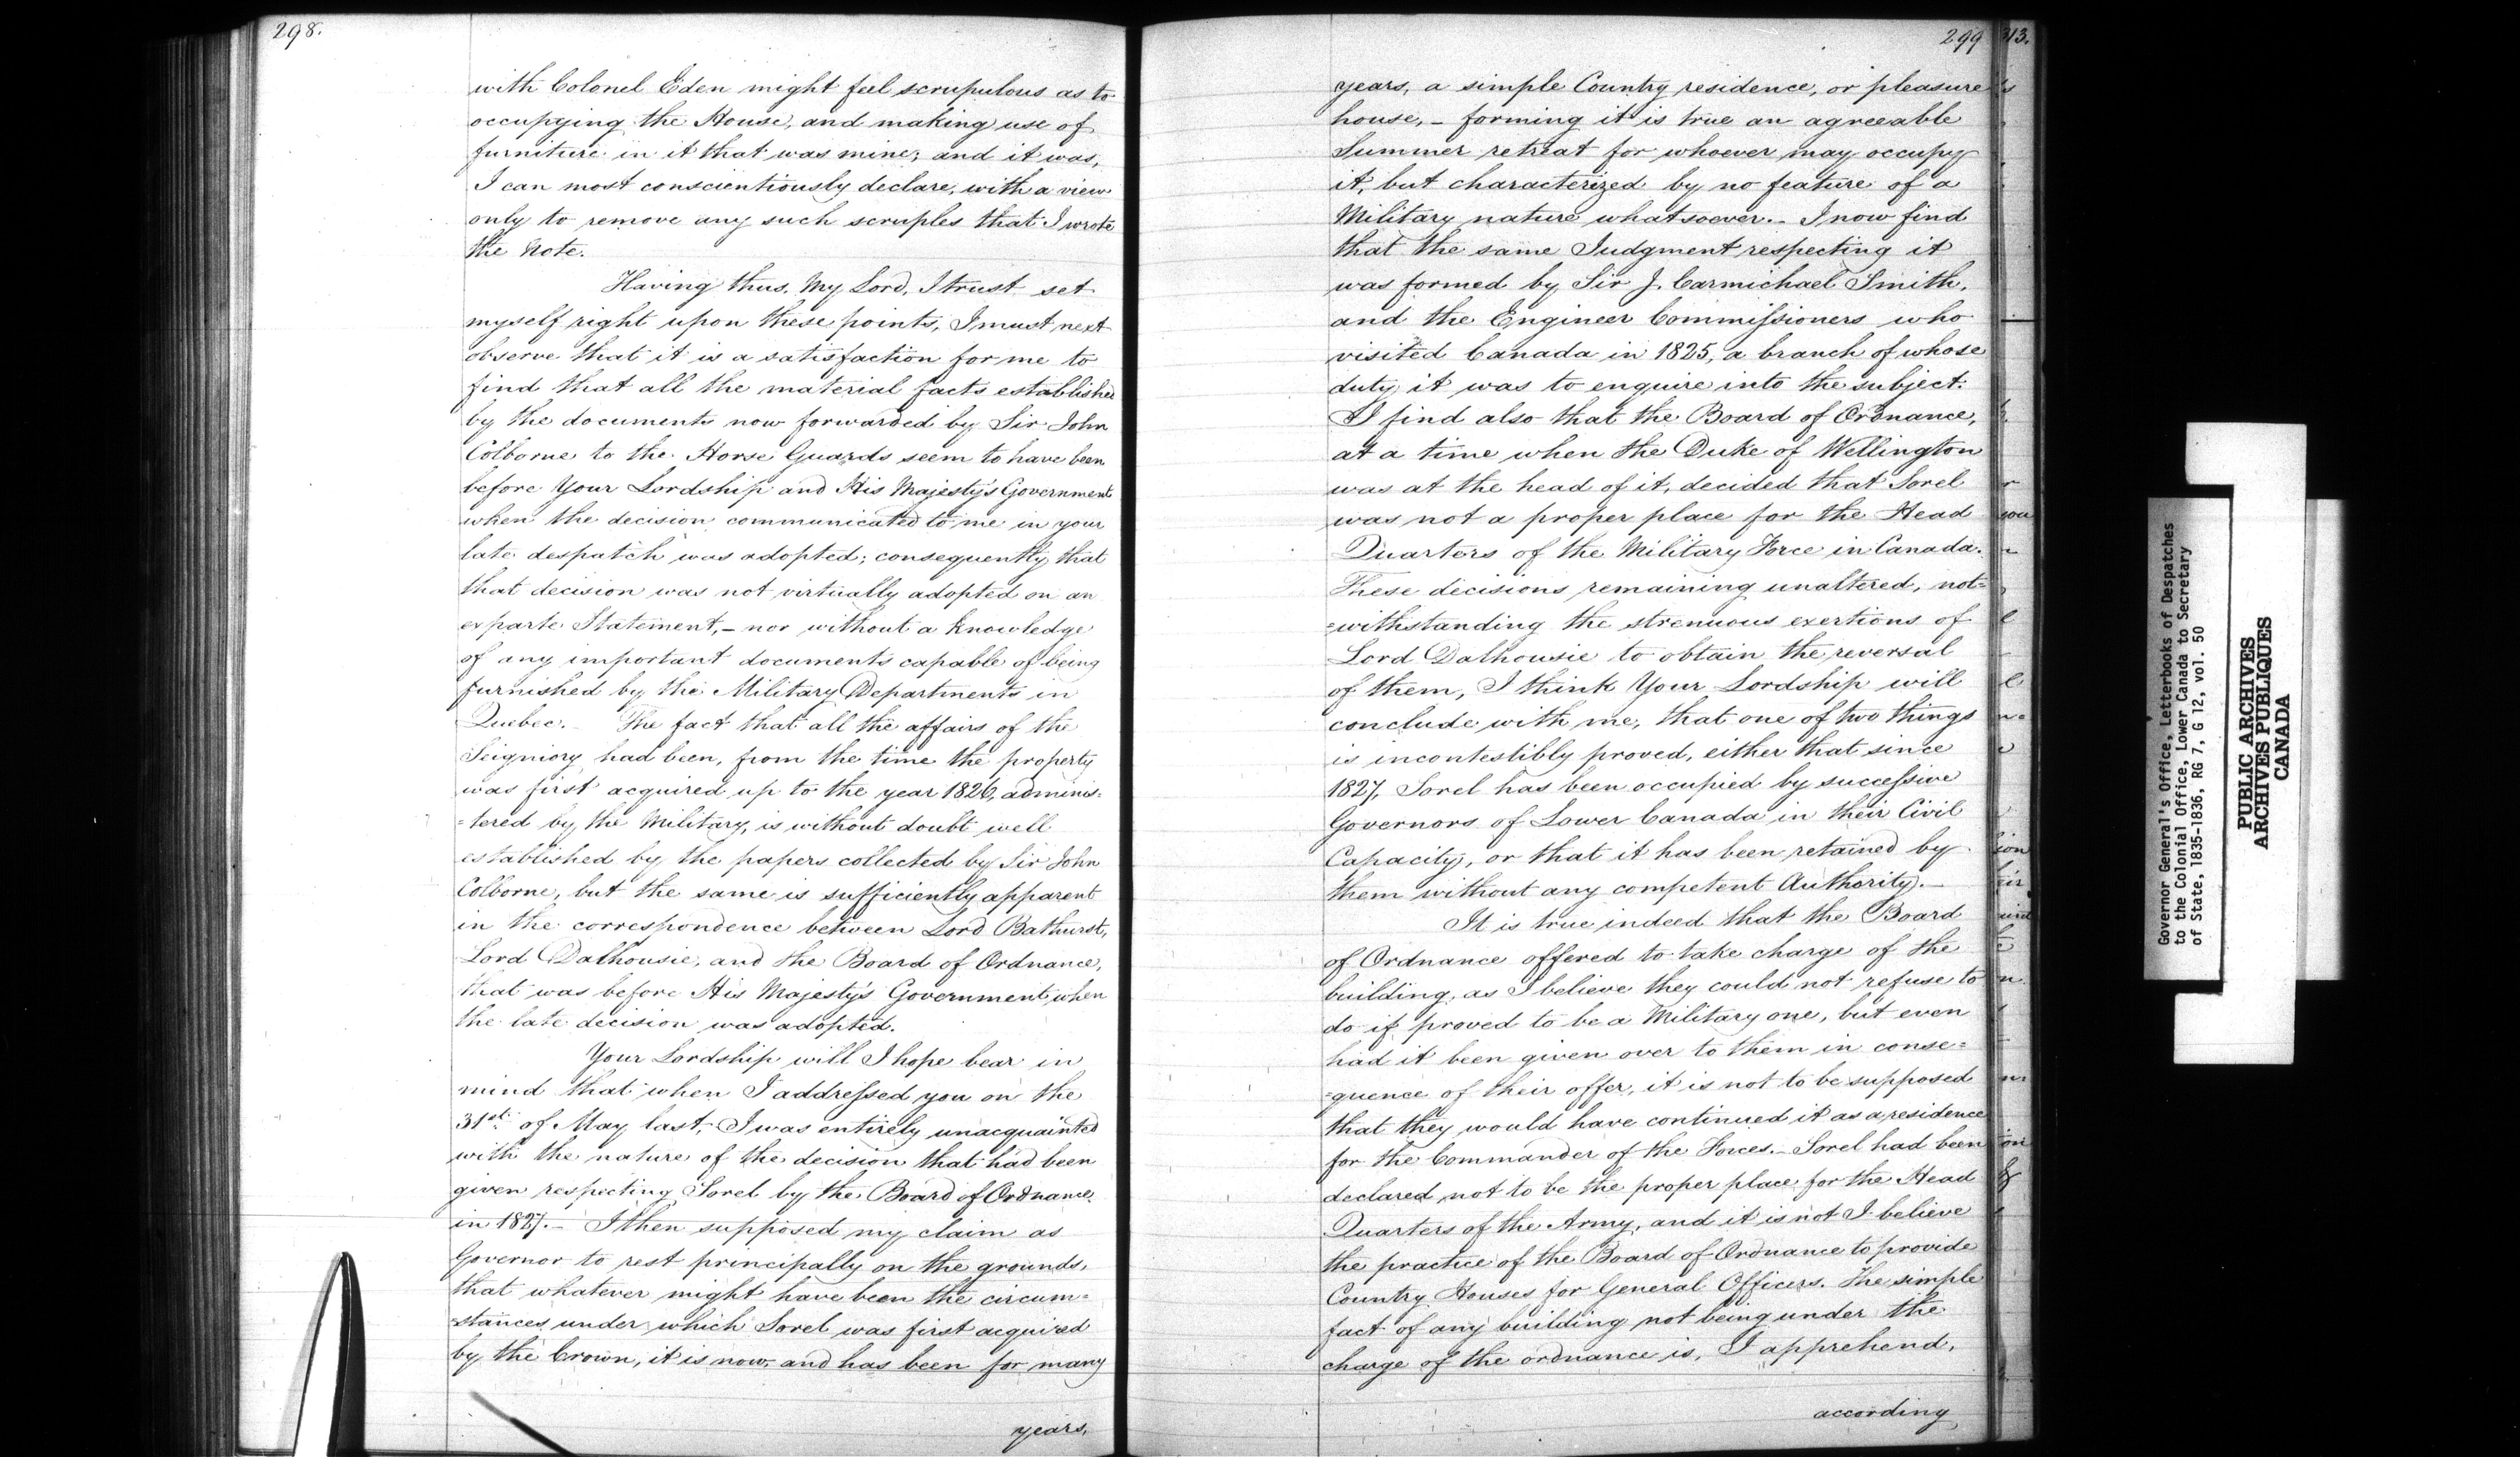 298.
with Colonel Eden might feel scrupulous as to
occupying the House, and making use of
furniture in it that was mine; and it was,
I can most conscientiously declare, with a view
only to remove any such scruples that I wrote
the Note.
Having thus, My Lord, I trust set
myself right upon these points, I must next
observe that it is a satisfaction for me to
find that all the material facts established
by the documents now forwarded by Sir John
Colborne to the Horse Guards seem to have been
before Your Lordship and His Majesty's Government
when the decision communicated to me in your
late despatch was adopted; consequently that
that decision was not virtually adopted on an
ex parte Statement, - nor without a knowledge
of any important documents capable of being
furnished by the Military Departments in
Quebec. The fact that all the affairs of the
Seigniory had been, from the time the property
was first acquired up to the year 1826, adminis=
=tered by the Military, is without doubt well
established by the papers collected by Sir John
Colborne, but the same is sufficiently apparent
in the correspondence between Lord Bathurst,
Lord Dalhousie, and the Board of Ordnance,
that was before His Majesty's Government when
the late decision was adopted.
Your Lordship will I hope bear in
mind that when I addressed you on the
31st of May last, I was entirely unacquainted
with the nature of the decision that had been
given respecting Sorel by the Board of Ordnance
in 1827. - I then supposed my claim as
Governor to rest principally on the grounds,
that whatever might have been the circum=
=stances under which Sorel was first acquired
by the Crown, it is now and has been for many
years,
299
years, a simple Country residence, or pleasure
house, - forming it is true an agreeable
Summer retreat for whoever may occupy
it, but characterized by no feature of a
Military nature whatsoever. - I now find
that the same Judgment respecting it
was formed by Sir J. Carmichael Smith,
and the Engineer Commissioners who
visited Canada in 1825, a branch of whose
duty it was to enquire into the subject.
I find also that the Board of Ordnance,
at a time when the Duke of Wellington
was at the head of it, decided that Sorel
was not a proper place for the Head
Quarters of the Military Force in Canada.
These decisions remaining unaltered, not=
=withstanding the strenuous exertions of
Lord Dalhousie to obtain the reversal
of them, I think Your Lordship will
conclude with me, that one of two things
is incontestibly proved, either that since
1827, Sorel has been occupied by successive
Governors of Lower Canada in their Civil
Capacity, or that it has been retained by
them without any competent Authority. -
It is true indeed that the Board
of Ordnance offered to take charge of the
building, as I believe they could not refuse to
do if proved to be a Military one, but even
had it been given over to them in conse=
=quence of their offer, it is not to be supposed
that they would have continued it as a residence
for the Commander of the Forces. - Sorel had been
declared not to be the proper place for the Head
Quarters of the Army, and it is not I believe
the practice of the Board of Ordnance to provide
Country Houses for General Officers. The simple
fact of any building not being under the
charge of the ordnance is, I apprehend,
according
313.
Governor General's Office, Letterbooks of Despatches
to the Colonial Office, Lower Canada to Secretary
of State, 1835-1836, RG 7, G 12, vol. 50
PUBLIC ARCHIVES
ARCHIVES PUBLIQUES
CANADA